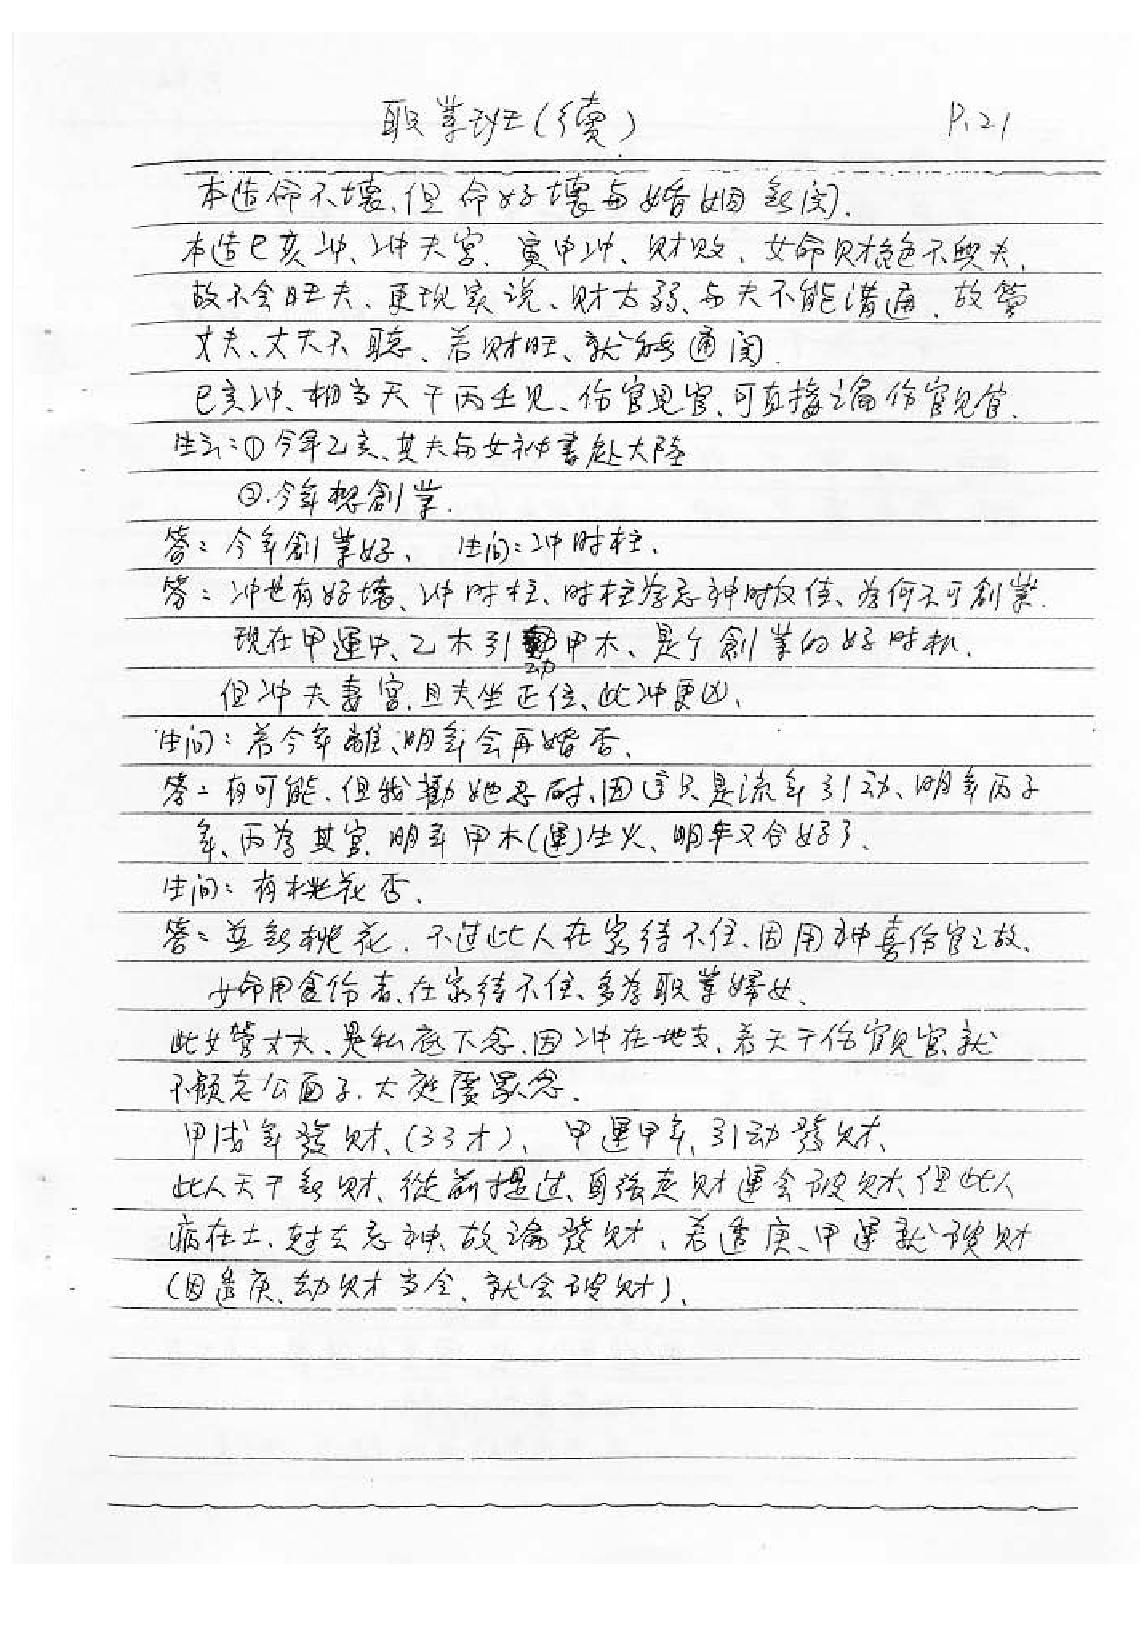 职業班(续) P.21
本造命不壞、但命好壞与婚姻無関.
本造巳亥冲、冲夫宮、寅申冲、财败、女命财絕不興夫、
故不会旺夫、更現実说、财太弱、与夫不能溝通、故管
丈夫、丈夫不聽、若财旺、就能通関.
巳亥冲、相当天干丙壬见、伤官見官、可直接論伤官见官.
生: ①今年乙亥、其夫与女秘書赴大陸
②.今年想創業.
答: 今年創業好、 生问: 冲时柱.
答: 冲也有好壞、冲时柱、时柱為忌神时反佳、為何不可創業.
現在甲運中、乙木引動甲木、是个創業的好时机.
动
但冲夫妻宮、且夫坐正位、此冲更凶、
生问: 若今年離、明年会再婚否、
答: 有可能、但我勸她忍耐、因這只是流年引动、明年丙子
年、丙為其官、明年甲木(運)生火、明年又合好了.
生问: 有桃花否.
答: 並無桃花、不过此人在家待不住、因用神喜伤官之故、
女命用食伤者、在家待不住、多為职業婦女、
此女管丈夫、是私底下念、因冲在地支、若天干伤官见官、就
不顧老公面子、大庭廣眾念.
甲戌年發财、(33才)、甲運甲年、引动發财、
此人天干無财、從前提过、身強走财運会破财、但此人
病在土、尅去忌神、故論發财、若透庚、甲運就破财
(因透庚、劫财当令、就会破财)、